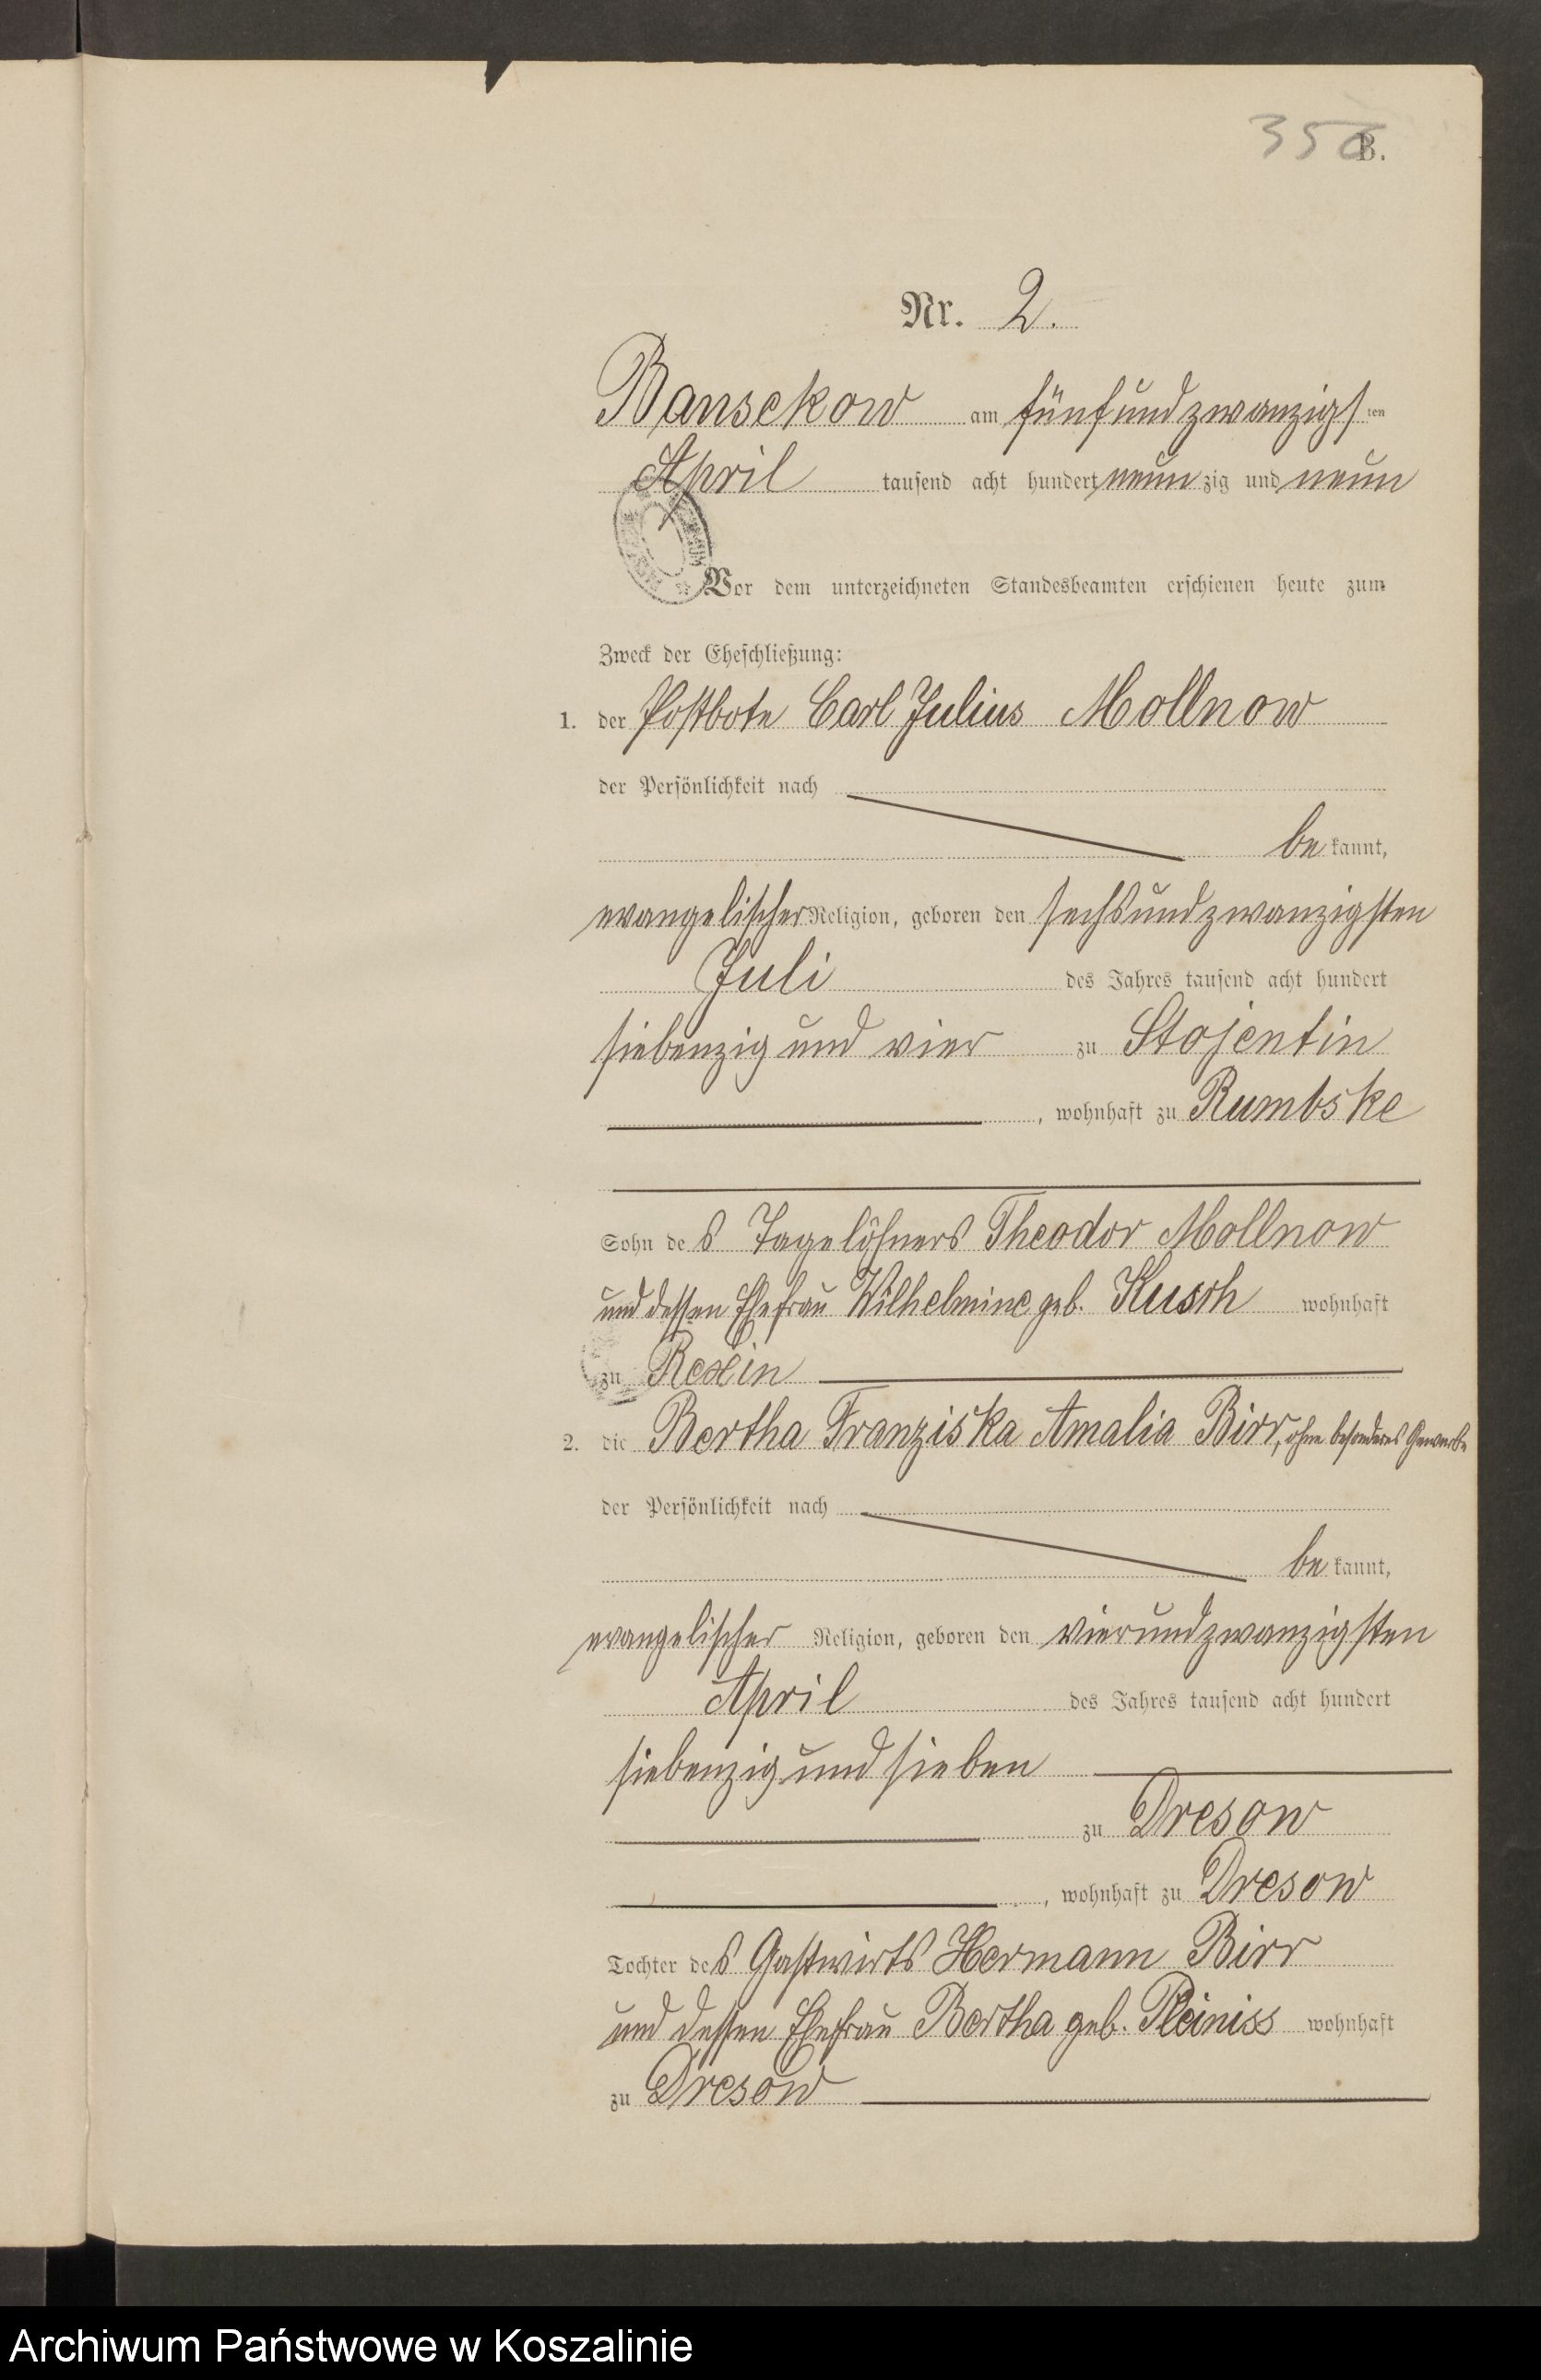 350
B.
Nr. 2.
Bansekow am fünfundzwanzigsten
April tausend acht hundert neunzig und neun
Vor dem unterzeichneten Standesbeamten erschienen heute zum
Zweck der Eheschließung:
1. der Postbote Carl Julius Mollnow
der Persönlichkeit nach
bekannt,
evangelischer Religion, geboren den sechsundzwanzigsten
Juli des Jahres tausend acht hundert
siebenzig und vier zu Stojentin
, wohnhaft zu Rumbske
Sohn des Tagelöhners Theodor Mollnow
und dessen Ehefrau Wilhelmine geb. Kusch wohnhaft
zu Rexin
2. die Bertha Franziska Amalia Birr, ohne besonderes Gewerbe
der Persönlichkeit nach
bekannt,
evangelischer Religion, geboren den vierundzwanzigsten
April des Jahres tausend acht hundert
siebenzig und sieben
zu Dresow
, wohnhaft zu Dresow
Tochter des Gastwirts Hermann Birr
und dessen Ehefrau Bertha geb. Pleiniss wohnhaft
zu Dresow
Archiwum Państwowe w Koszalinie